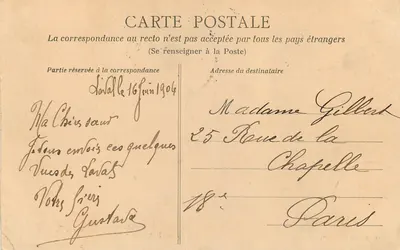 CARTE POSTALE
La correspondance au recto n'est pas acceptée par tous les pays étrangers
(Se renseigner à la Poste)
Partie réservée à la correspondance
Adresse du destinataire
Laval le 16 Juin 1904
Ma Chère sœur
Je vous envoie ces quelques
Vues de Laval
Votre frère
Gustave
Madame Gilbert
25 Rue de la
Chapelle
18e Paris